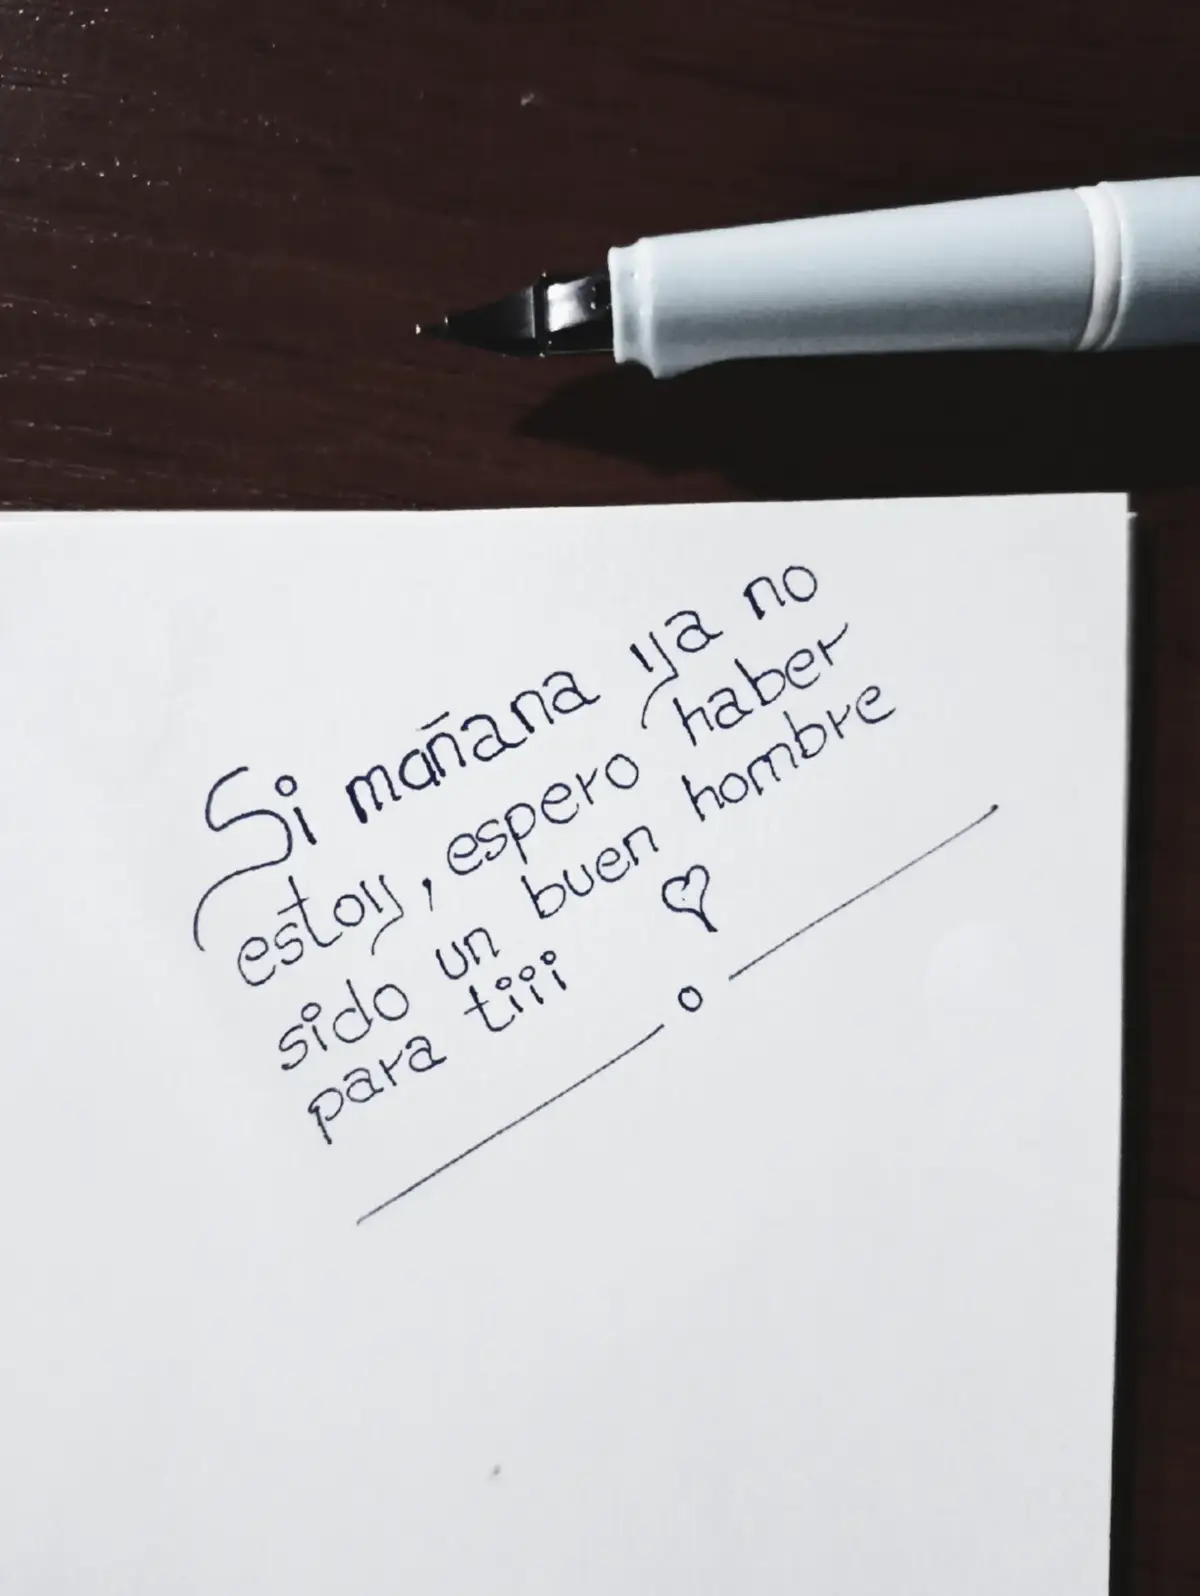 Si mañana ya no
estoy, espero haber
sido un buen hombre
para tiii ♡